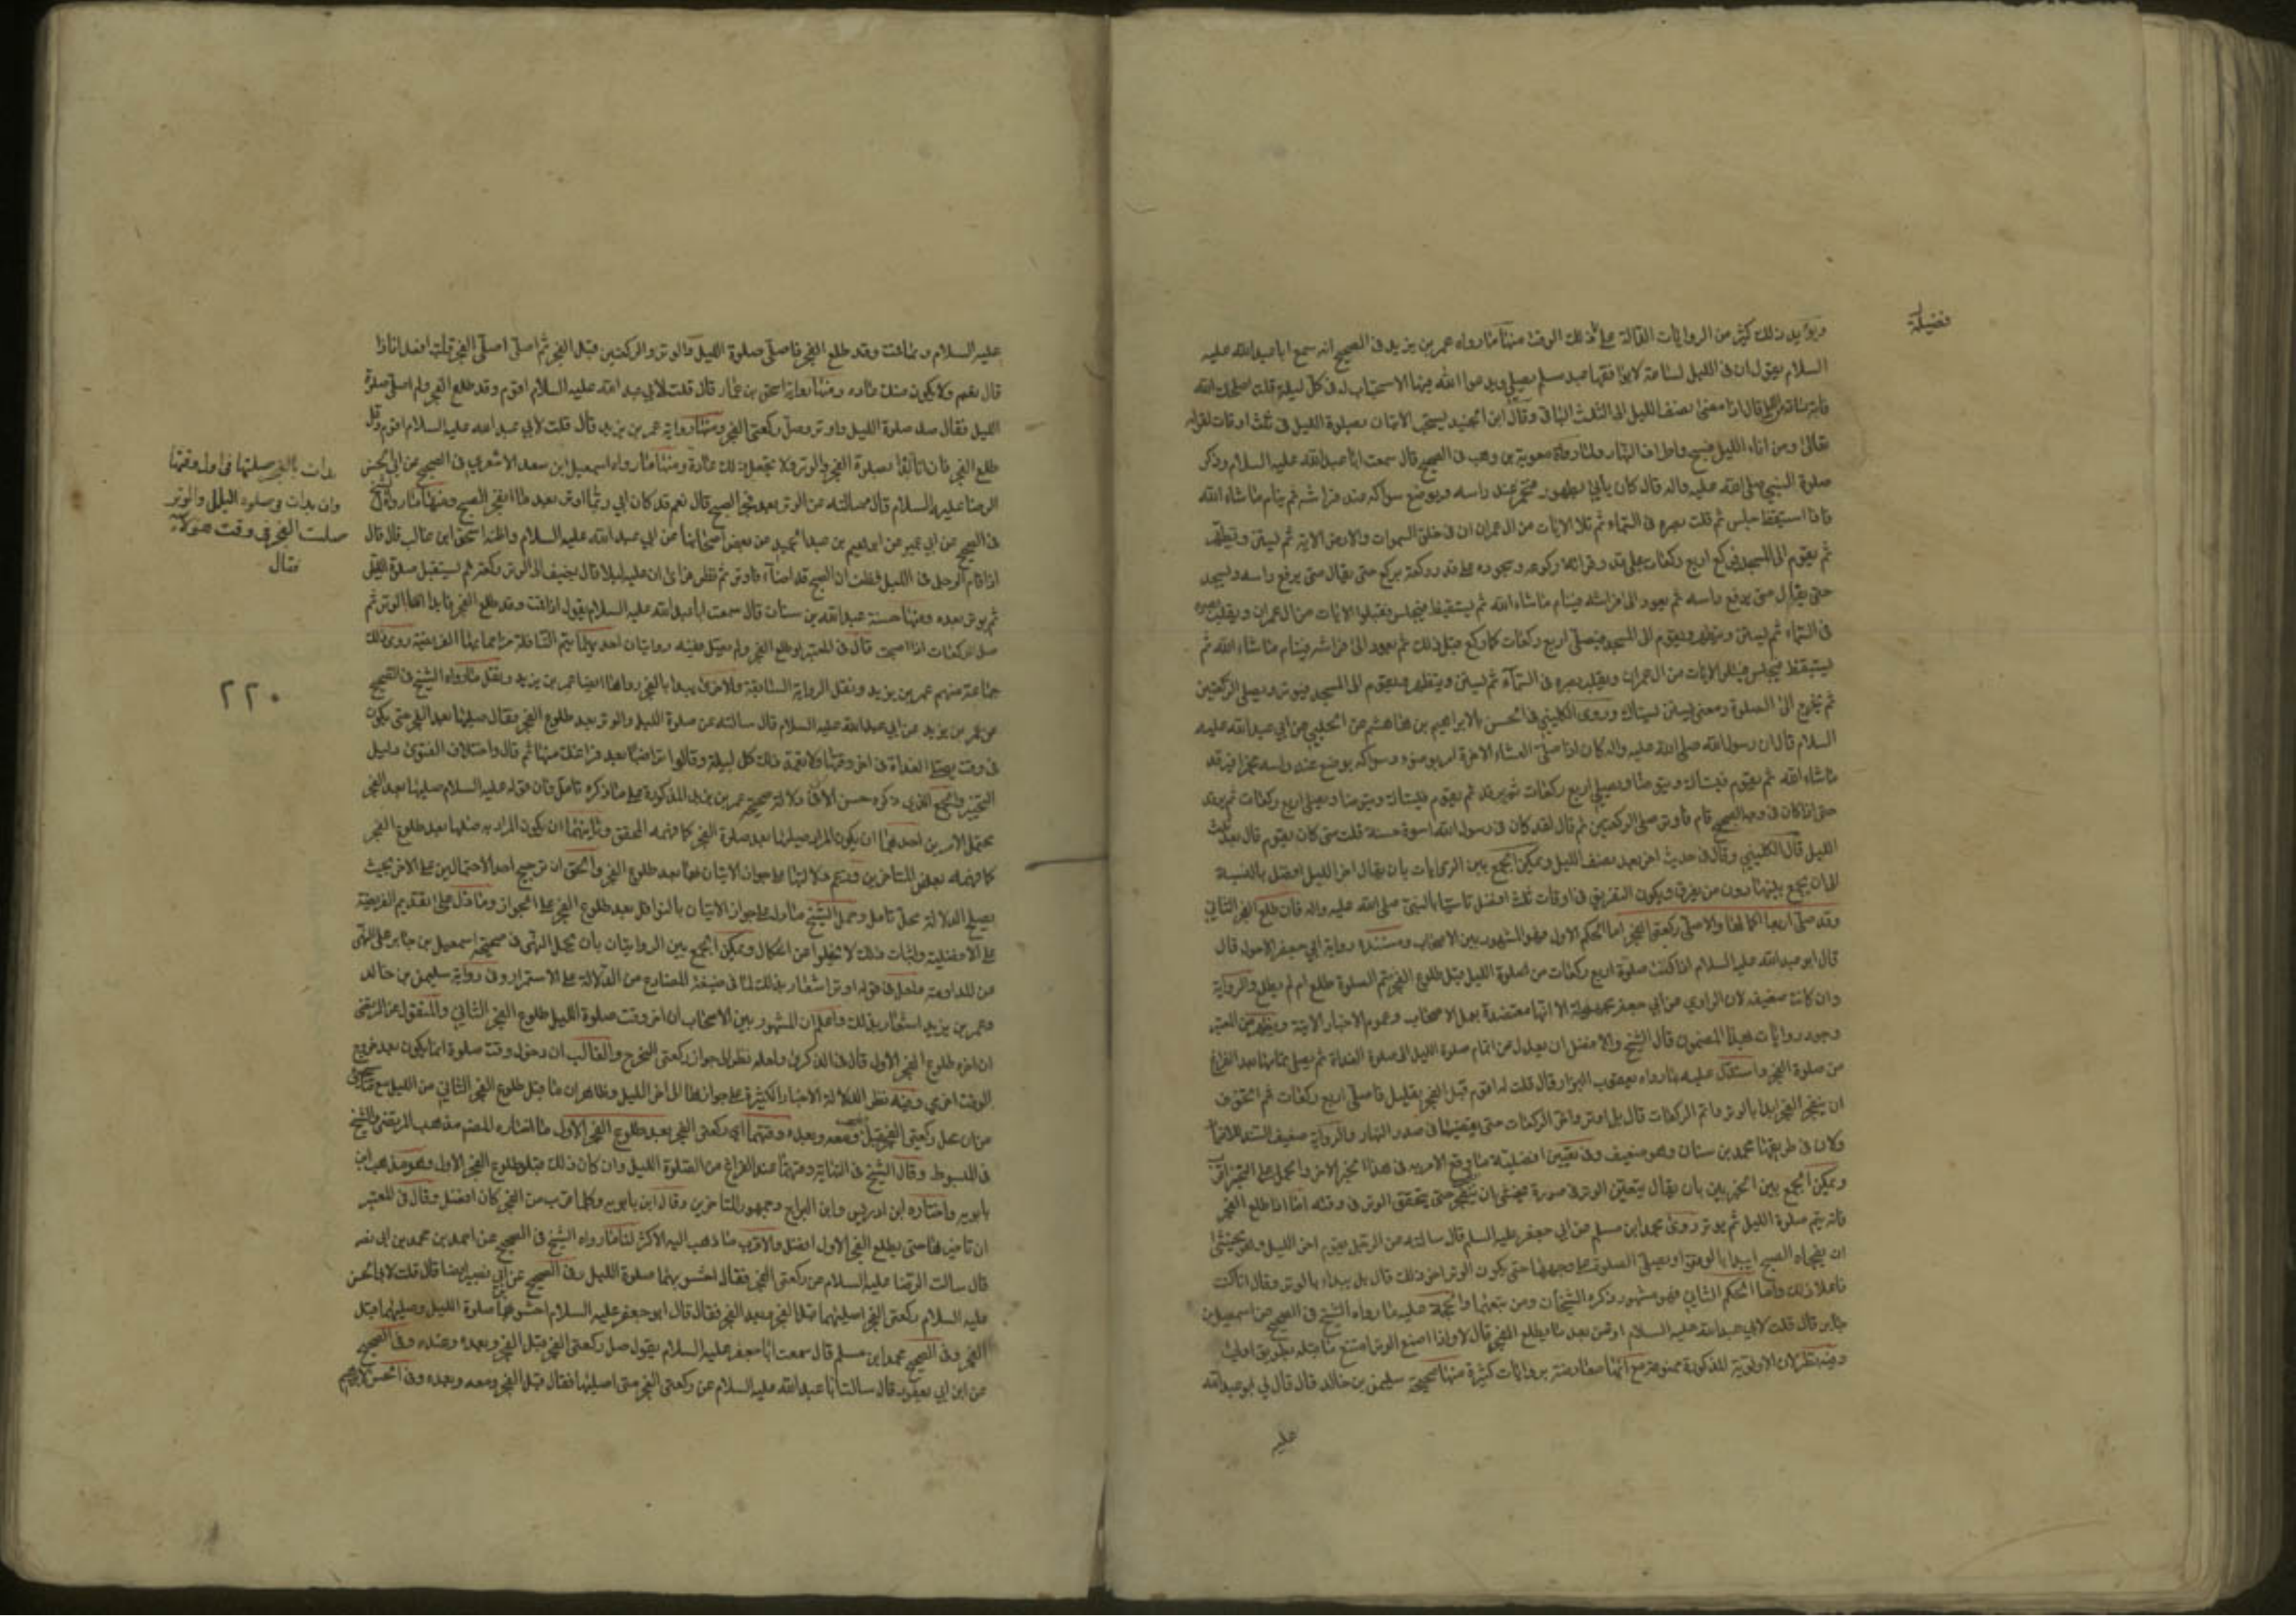 فضيلة
ويؤيد ذلك كثير من الروايات الدالة على ذلك الوقت منها ما رواه عمر بن يزيد في الصحيح انه سمع ابا عبد الله عليه
السلام يقول ان في الليل لساعة لا يوافقها عبد مسلم يصلي ويدعو الله فيها الا استجاب له في كل ليلة قلت اصلحك الله
قال اذا مضى نصف الليل الى الثلث الباقي وقال ابن الجنيد يستحب الاتيان بصلوة الليل في ثلث اوقات لقوله
تعالى ومن اناء الليل فسبح واطراف النهار ولما رواه معوية بن وهب في الصحيح قال سمعت ابا عبد الله عليه السلام وذكر
صلوة النبي صلى الله عليه واله قال كان يأتي بطهور فيخمر عند راسه ويوضع سواكه عند فراشه ثم ينام ما شاء الله
فاذا استيقظ جلس ثم قلب بصره في السماء ثم تلا الايات من ال عمران ان في خلق السموات والارض الاية ثم يستن ويتطهر
ثم يقوم الى المسجد فيركع اربع ركعات على قدر قرائة ركوعه وسجوده على قدر ركوعه يركع حتى يقال متى يرفع راسه ويسجد
حتى يقال متى يرفع راسه ثم يعود الى فراشه فينام ما شاء الله ثم يستيقظ فيجلس فيتلوا الايات من ال عمران ويقلب بصره
في السماء ثم يستن ويتطهر ويقوم الى المسجد فيصلي اربع ركعات كما ركع قبل ذلك ثم يعود الى فراشه فينام ما شاء الله ثم
يستيقظ فيجلس فيتلو الايات من ال عمران ويقلب بصره في السماء ثم يستن ويتطهر ويقوم الى المسجد فيوتر ويصلي الركعتين
ثم يخرج الى الصلوة ومعنى يستن يستاك وروى الكليني في الحسن بابراهيم بن هاشم عن الحلبي عن ابي عبد الله عليه
السلام قال ان رسول الله صلى الله عليه واله كان اذا صلى العشاء الاخرة امر بوضوء وسواكه يوضع عند راسه مخمرا فيرقد
ما شاء الله ثم يقوم فيستاك ويتوضا ويصلي اربع ركعات ثم يرقد ثم يقوم فيستاك ويتوضا ويصلي اربع ركعات ثم يرقد
حتى اذا كان في وجه الصبح قام فاوتر صلى الركعتين ثم قال لقد كان في رسول الله اسوة حسنة قلت متى كان يقوم قال بعد ثلث
الليل قال الكليني وقال في حديث اخر بعد نصف الليل ويمكن الجمع بين الروايات بان يقال اخر الليل افضل بالنسبة
الى ان يجمع بينها دون من يفرق ويكون التفريق في اوقات ثلث افضل تاسيا بالنبي صلى الله عليه واله فان طلع الفجر الثاني
وقد صلى اربعا اكملها والا صلى ركعتي الفجر اما الحكم الاول فهو المشهور بين الاصحاب ومستنده رواية ابي جعفر الاحول قال
قال ابو عبد الله عليه السلام اذا كنت صلوة اربع ركعات من صلوة الليل قبل طلوع الفجر يتم الصلوة طلع ام لم يطلع والرواية
وان كانت ضعيفة لان الراوي عن ابي جعفر مجهولة الا انها معتضدة بعمل الاصحاب وعموم الاخبار الاتية ويظهر من المعتبر
وجود روايات بهذا المضمون قال الشيخ والافضل ان يعدل من اتمام صلوة الليل الى صلوة الغداة ثم يصلي تمامها بعد الفراغ
من صلوة الفجر واستدل عليه بما رواه يعقوب البزاز قال قلت له اقوم قبل الفجر بقليل فاصلي اربع ركعات ثم اتخوف
ان ينفجر الفجر ابدا بالوتر واتم الركعات قال بل اوتر واخر الركعات حتى يقضيها في صدر النهار والرواية ضعيف السند
ولان في طريقها محمد بن سنان وهو ضعيف وفي تعيين افضلية ما وقع الامر به في هذا الخبر
ويمكن الجمع بين الخبرين بان يقال يتعين الوتر في صورة يخشى ان ينفجر حتى يتحقق الوتر في وقته اما اذا طلع الفجر
فانه يتم صلوة الليل ثم يوتر روى محمد ابن مسلم عن ابي جعفر عليه السلم قال سالته عن الرجل يقوم اخر الليل وهو يخشى
ان يفجاه الصبح ايبدا بالوتر او يصلي الصلوة على وجهها حتى يكون الوتر اخر ذلك قال بل يبداء بالوتر وقال انا كنت
فاعلا ذلك واما الحكم الثاني فهو مشهور ذكره الشيخان ومن تبعهما والحجة عليه ما رواه الشيخ في الصحيح عن اسمعيل بن
جابر قال قلت لابي عبد الله عليه السلام اوتر بعد ما يطلع الفجر قال لا واذا امتنع الوتر امتنع ما قبله بطريق اولى
وفيه نظر لان الاولوية المذكورة ممنوعة مع انها معارضة بروايات كثيرة منها صحيحة سليمن بن خالد قال قال لي ابو عبد الله
عليه
عليه السلام ربما قمت وقد طلع الفجر فاصلي صلوة الليل والوتر والركعتين قبل الفجر ثم اصلي الفجر قلت افعل انا ذا
قال نعم ولا يكون منك عادة ومنها رواية اسحق بن عمار قال قلت لابي عبد الله عليه السلام اقوم وقد طلع الفجر ولم اصلي صلوة
الليل فقال صل صلوة الليل واوتر وصل ركعتي الفجر ومنها رواية عمر بن يزيد قال قلت لابي عبد الله عليه السلام اقوم وقد
طلع الفجر فان انا بدأت بصلوة الفجر والوتر ولا تجعل ذلك عادة ومنها ما رواه اسمعيل ابن سعد الاشعري في الصحيح عن ابي الحسن
الرضا عليه السلام قال سالته عن الوتر بعد فجر الصبح قال نعم قد كان ابي ربما اوتر بعد ما انفجر الصبح ومنها ما رواه الشيخ
في الصحيح عن ابن ابي عمير عن ابراهيم بن عبد الحميد عن بعض اصحابنا عن ابي عبد الله عليه السلام واظنه اسحق ابن غالب قال قال
اذا قام الرجل في الليل فظن ان الصبح قد اضاء فاوتر ثم نظر فراى ان عليه ليلا قال يضيف الى الوتر ركعة ثم يستقبل صلوة الليل
ثم يوتر بعده ومنها حسنة عبد الله بن سنان قال سمعت ابا عبد الله عليه السلام يقول اذا قمت وقد طلع الفجر فابدا بالوتر ثم
صل الركعات اذا اصبحت قال في المعتبر لو طلع الفجر ولم يصل ففيه روايتان احديهما يتم النافلة مزاحما بها الفريضة روى ذلك
جماعة منهم عمر بن يزيد ونقل الرواية السابقة والاخرى يبدا بالفجر رواها ايضا عمر بن يزيد ونقل ما رواه الشيخ في الصحيح
عن عمر بن يزيد عن ابي عبد الله عليه السلام قال سالته عن صلوة الليل والوتر بعد طلوع الفجر فقال صلها بعد الفجر حتى يكون
في وقت يصلي الغداة في اخر وقتها ولا تعمد ذلك كل ليلة وقال اوتر ايضا بعد فراغك منها ثم قال واختلاف الفتوى دليل
التخيير والجمع الذي ذكره حسن الا ان دلالة صحيحة عمر بن يزيد المذكورة على ما ذكره تامل فان قوله عليه السلام صلها بعد الفجر
يحتمل الامرين احدهما ان يكون المراد صلها بعد صلوة الفجر كما فهمه المحقق وثانيهما ان يكون المراد به صلها بعد طلوع الفجر
كما فهمه بعض المتاخرين فزعم دلالتها على جواز الاتيان بها بعد طلوع الفجر والحق ان ترجيح احد الاحتمالين على الاخر بحيث
يصلح الدلالة محل تامل وحمل الشيخ ما دل على جواز الاتيان بالنوافل بعد طلوع الفجر على الجواز وما دل على تقديم الفريضة
على الافضلية واثبات ذلك لا يخلوا عن اشكال ويمكن الجمع بين الروايتان بان يحمل النهي في صحيحة اسمعيل بن جابر على النهي
عن المداومة ولعل في قوله اوتر اشعار بذلك لما في صيغة المضارع من الدلالة على الاستمرار وفي رواية سليمن بن خالد
وعمر بن يزيد اشعار بذلك واعلم ان المشهور بين الاصحاب ان اخر وقت صلوة الليل طلوع الفجر الثاني والمنقول عن المرتضى
ان اخره طلوع الفجر الاول قال في الذكرى ولعله نظر الى جواز ركعتي الفجر ح والغالب ان دخول وقت صلوة انما يكون بعد خروج
الوقت اخرى وفيه نظر لدلالة الاخبار الكثيرة على جوازها الى اخر الليل وظاهر ان ما قبل طلوع الفجر الثاني من الليل
من ان محل ركعتي الفجر قبل الفجر ومعه وبعده وقتهما اي ركعتي الفجر بعد طلوع الفجر الاول ما اختاره المصنف مذهب المرتضى والشيخ
في المبسوط وقال الشيخ في النهاية وقتهما عند الفراغ من الصلوة الليل وان كان ذلك قبل طلوع الفجر الاول وهو مذهب ابن
بابويه واختاره ابن ادريس وابن البراج وجمهور المتاخرين وقال ابن بابويه وكلما قرب من الفجر كان افضل وقال في المعتبر
ان تاخيرهما حتى يطلع الفجر الاول افضل والاقرب ما ذهب اليه الاكثر لنا ما رواه الشيخ في الصحيح عن احمد بن محمد بن ابي نصر
قال سالت الرضا عليه السلام عن ركعتي الفجر فقال احشو بهما صلوة الليل وفي الصحيح عن ابن ابي نصير ايضا قال قلت لابي الحسن
عليه السلام ركعتي الفجر اصليهما قبل الفجر وبعد الفجر فقال قال ابو جعفر عليه السلام احشو بهما صلوة الليل وصلهما قبل
الفجر وفي الصحيح محمد ابن مسلم قال سمعت ابا جعفر عليه السلام يقول صل ركعتي الفجر قبل الفجر وبعده وعنده وفي الصحيح
عن ابن ابي يعفور قال سالت ابا عبد الله عليه السلام عن ركعتي الفجر متى اصليهما فقال قبل الفجر ومعه وبعده وفي الحسن لابراهيم
بدات بالفجر صليتها في اول وقتها
وان بدات في صلوة الليل والوتر
صليت الفجر في وقت هولاء
فقال
٢٢٠